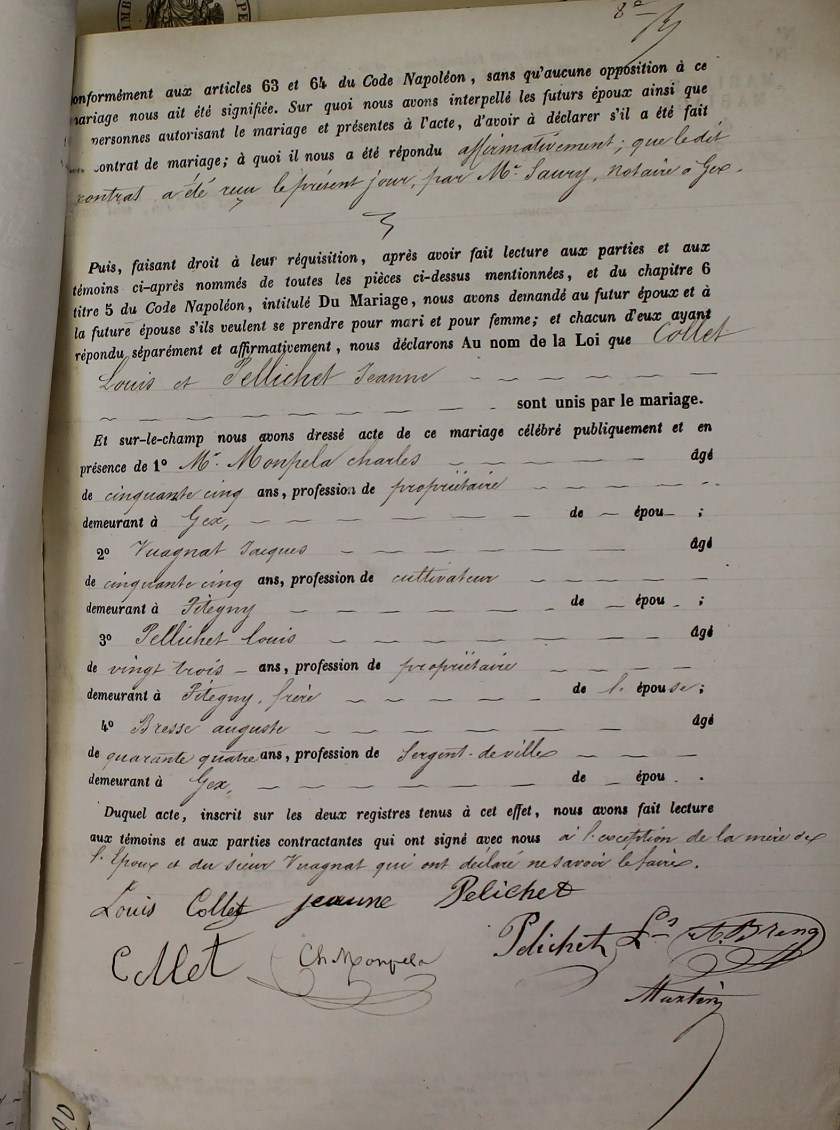 onformément aux articles 63 et 64 du Code Napoléon, sans qu'aucune opposition à ce
mariage nous ait été signifiée. Sur quoi nous avons interpellé les futurs époux ainsi que
personnes autorisant le mariage et présentes à l'acte, d'avoir à déclarer s'il a été fait
contrat de mariage; à quoi il nous a été répondu affirmativement; que le dit
contrat a été reçu le présent jour, par Mr Saury, notaire à Gex.
Puis, faisant droit à leur réquisition, après avoir fait lecture aux parties et aux
témoins ci-après nommés de toutes les pièces ci-dessus mentionnées, et du chapitre 6
titre 5 du Code Napoléon, intitulé Du Mariage, nous avons demandé au futur époux et à
la future épouse s'ils veulent se prendre pour mari et pour femme; et chacun d'eux ayant
répondu séparément et affirmativement, nous déclarons Au nom de la Loi que Collet
Louis et Pellichet Jeanne
sont unis par le mariage.
Et sur-le-champ nous avons dressé acte de ce mariage célébré publiquement et en
présence de 1º Mr. Monpela charles âgé
de cinquante cinq ans, profession de propriétaire
demeurant à Gex, de — épou— ;
2º Vuagnat Jacques âgé
de cinquante cinq ans, profession de cultivateur
demeurant à Pitegny de — épou - ;
3º Pellichet Louis âgé
de vingt trois — ans, profession de propriétaire
demeurant à Pitegny, frère de l' épouse;
4º Bresse auguste âgé
de quarante quatre ans, profession de Sergent-de-ville
demeurant à Gex, de — épou .
Duquel acte, inscrit sur les deux registres tenus à cet effet, nous avons fait lecture
aux témoins et aux parties contractantes qui ont signé avec nous à l'exception de la mère de
l'Epoux et du sieur Vuagnat qui ont déclaré ne savoir le faire.
Louis Collet jeanne Pelichet
Collet Ch Monpela Pelichet Ls
Martin